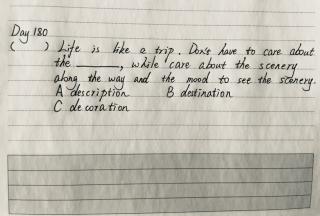 Day 180
( ) Life is like a trip. Don's have to care about
the ______, while care about the scenery
along the way and the mood to see the scenery.
A description B destination
C decoration